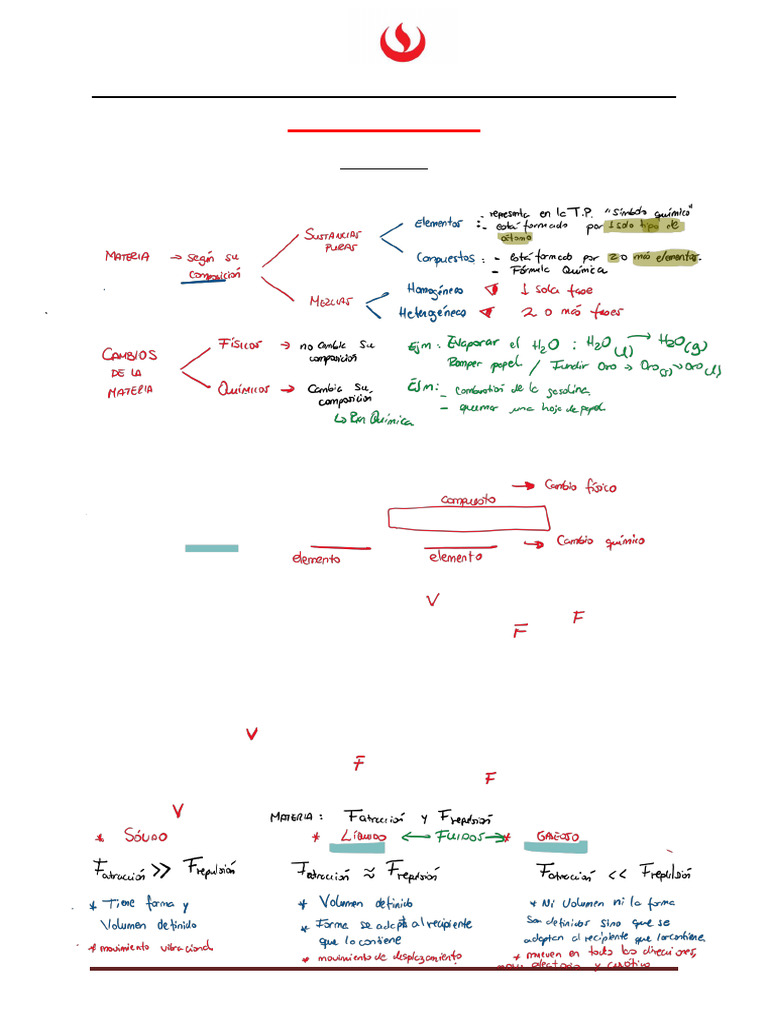 - representa en la T.P. "símbolo químico"
Elementos : - está formado por 1 solo tipo de
átomo
SUSTANCIAS
PURAS
MATERIA → según su
composición
Compuestos : - está formado por 2 o más elementos.
- Fórmula Química
Homogéneo 1 sola fase
MEZCLAS
Heterogéneo 2 o más fases
FÍSICOS → no cambia su
composición
Ejm : Evaporar el H2O : H2O(l) → H2O(g)
Romper papel / Fundir Oro → Oro(s) → Oro(l)
CAMBIOS
DE LA
MATERIA
QUÍMICOS → Cambia su
composición
↳ Rxn Química
Ejm :
- combustión de la gasolina.
- quemar una hoja de papel
→ Cambio físico
compuesto
→ Cambio químico
elemento elemento
V
F
F
V
F
F
V
MATERIA : Fatracción y Frepulsión
* SÓLIDO * LÍQUIDO ↔ FLUIDOS → * GASEOSO
Fatracción >> Frepulsión Fatracción ≈ Frepulsión Fatracción << Frepulsión
* Tiene forma y
Volumen definido
* movimiento vibracional
* Volumen definido
* Forma se adapta al recipiente
que lo contiene
* movimiento de desplazamiento
* Ni volumen ni la forma
son definidos sino que se
adaptan al recipiente que los contiene.
* mueven en todas las direcciones,
aleatorio y caótico